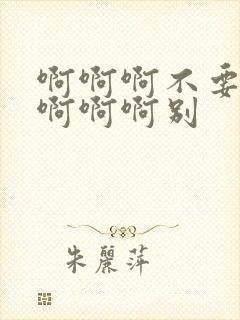 啊啊啊不要
啊啊啊别
朱麗萍